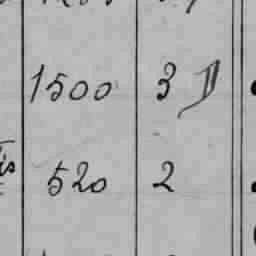 1500 3
520 2